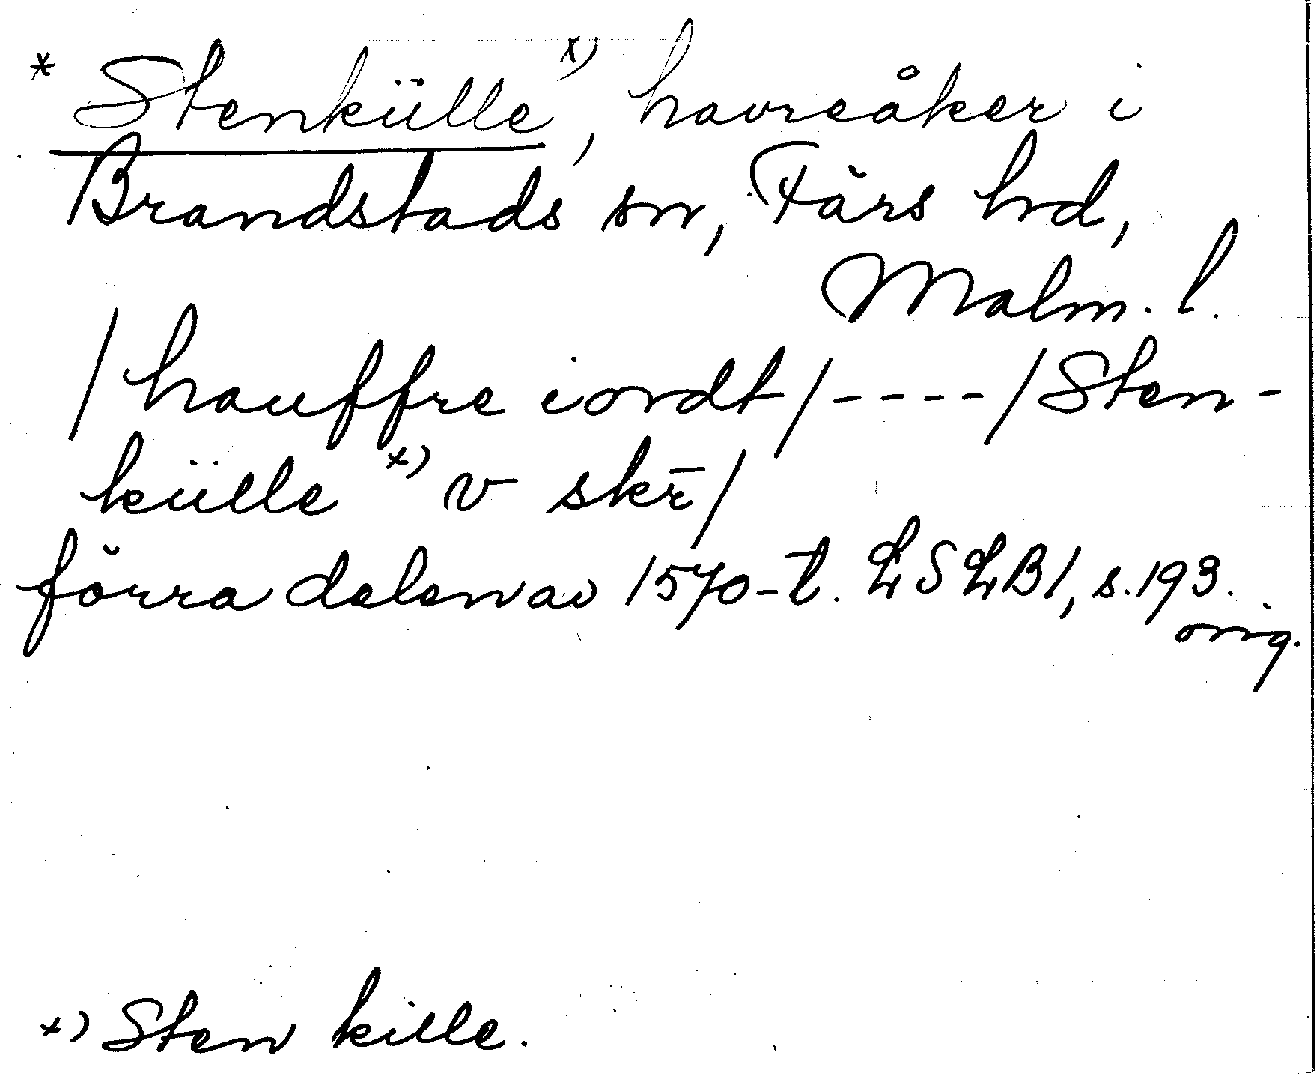 * Stenkülle x), havreåker i
Brandstads sn, Färs hd,
Malm. l.
/hauffre iordt/----/Sten-
külle x) v skr̄/
förra delen av 1570-t. LSLB1, s. 193.
orig.
x) Sten kille.